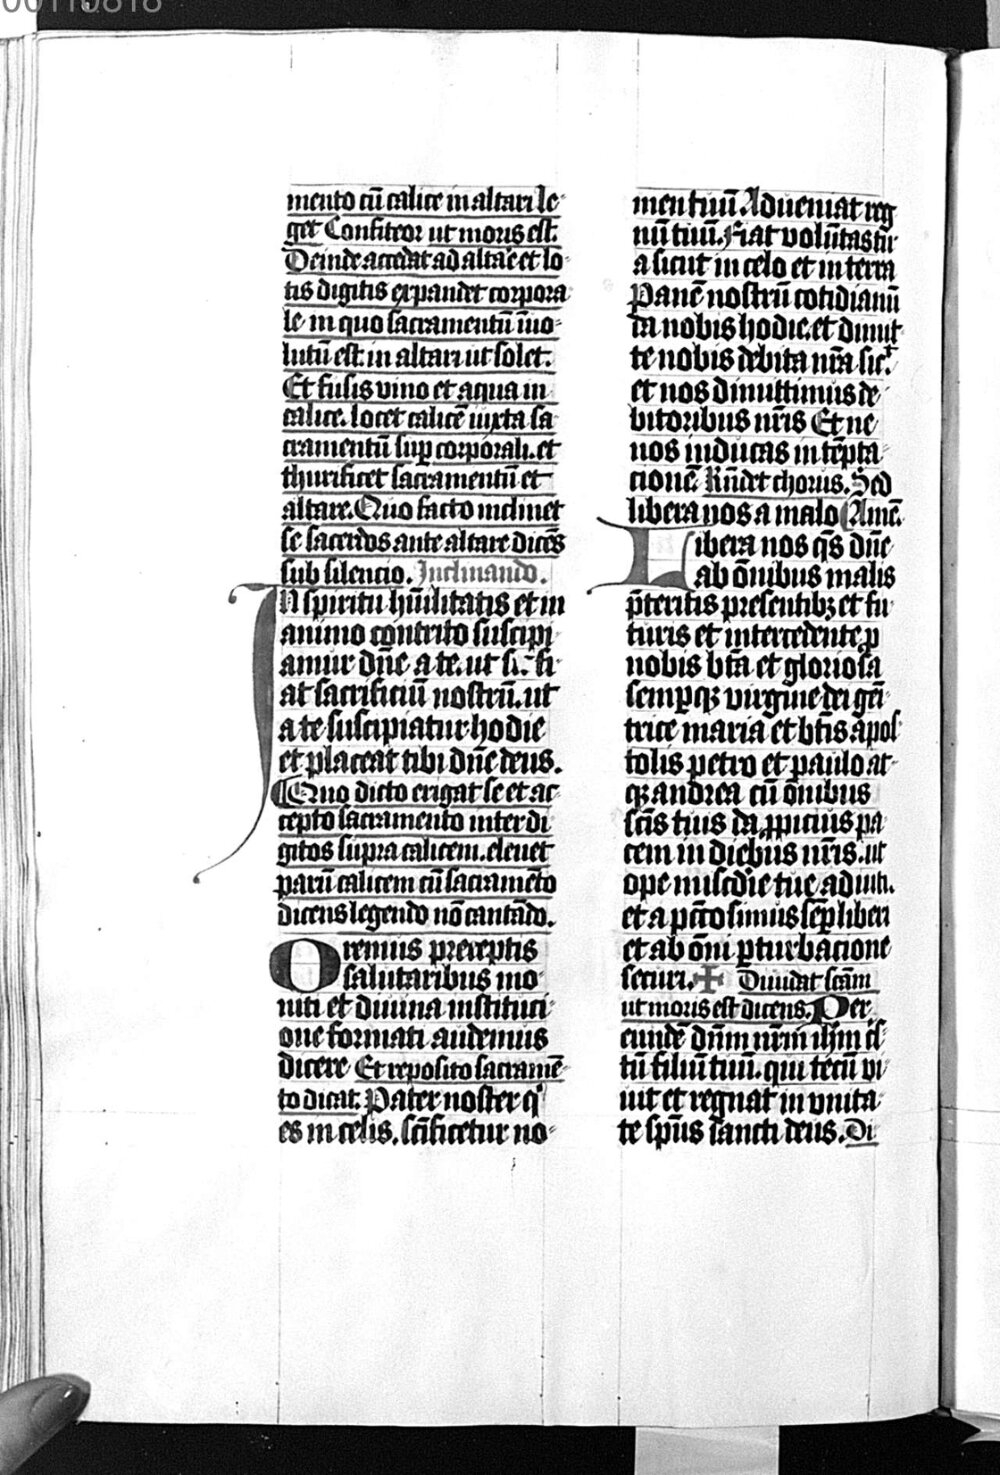 00110818
mento cū calice in altari le-
get Confiteor ut moris est.
Deinde accedat ad altare et lo-
tis digitis expandet corpora-
le in quo sacramentū inuo-
lutū est in altari ut solet.
Et fusis vino et aqua in
calice. locet calicē iuxta sa-
cramentū sup corporali. et
thurificet sacramentū et
altare. Quo facto inclinet
se sacerdos ante altare dicēs
sub silencio. Inclinando.
In spiritu hūilitatis et in
animo contrito suscipi-
amur dn̄e a te. ut sic fi-
at sacrificiū nostrū. ut
a te suscipiatur hodie
et placeat tibi dn̄e deus.
Quo dicto erigat se et ac-
cepto sacramento inter di-
gitos supra calicem. eleuet
parū calicem cū sacramēto
dicens legendo nō cantādo.
Oremus preceptis
salutaribus mo-
niti et diuina instituci-
one formati audemus
dicere Et reposito sacramē-
to dicat. Pater noster q
es in celis. sc̄ificetur no-
men tuū Adueniat reg-
nū tuū. Fiat volūtas tu-
a sicut in celo et in terra
Panē nostrū cotidianū
da nobis hodie. et dimit-
te nobis debita nr̄a sic.
et nos dimittimus de-
bitoribus nr̄is Et ne
nos inducas in tēpta-
cionē Rn̄det chorus. Sed
libera nos a malo Amē.
Libera nos qs dn̄e
ab ōnibus malis
p̄teritis presentibȝ et fu-
turis et intercedente p
nobis bt̄a et gloriosa
sempqȝ virgine dei geni-
trice maria et bt̄is apos-
tolis petro et paulo at-
qȝ andrea cū ōnibus
sc̄is tuis da ppicius pa-
cem in diebus nr̄is. ut
ope mīscd̄ie tue adiuti.
et a pcc̄to simus semp liberi
et ab ōni pturbacione
securi. ✠ Diuidat sc̄am
ut moris est dicens. Per
eundē dn̄m nr̄m ih̄m cr̄is-
tū filiū tuū. qui tecū vi-
uit et regnat in vnita-
te sp̄us sancti deus. Di